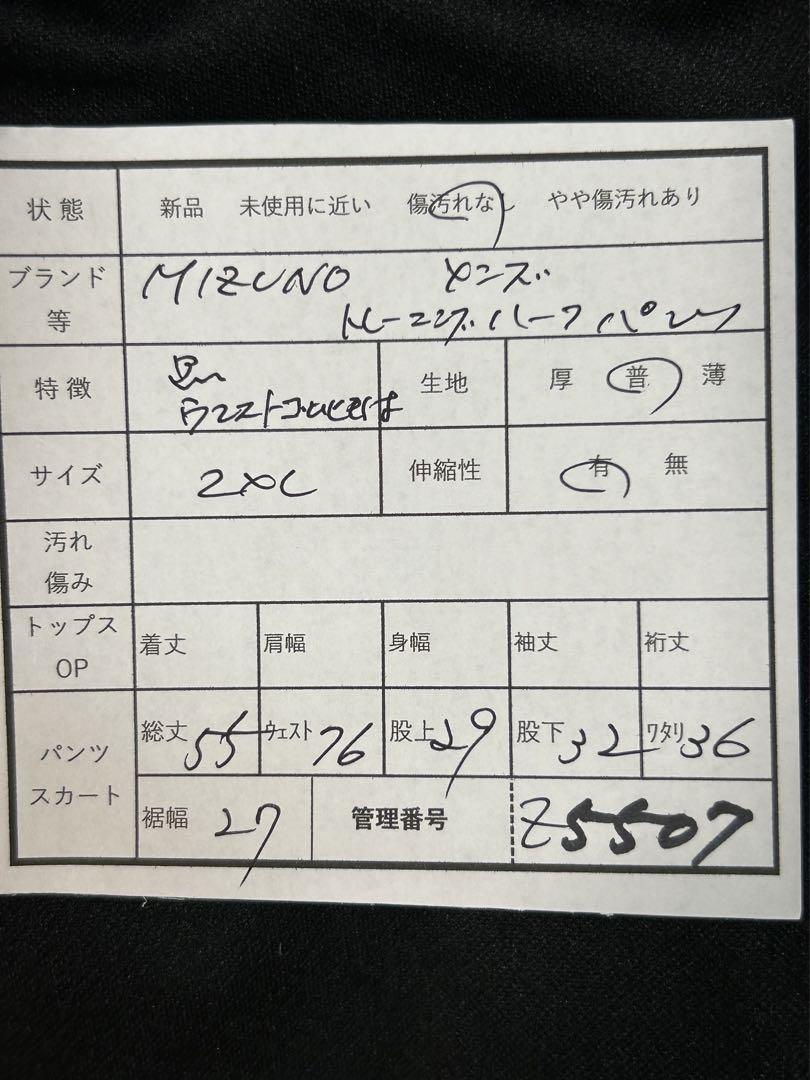 状態 新品 未使用に近い 傷汚れなし やや傷汚れあり
ブランド等 MIZUNO メンズ
トレーニングハーフパンツ
特徴 生地 厚 普 薄
ウエストゴム
サイズ 2XL 伸縮性 有 無
汚れ
傷み
トップス OP 着丈 肩幅 身幅 袖丈 裄丈
パンツ スカート 総丈 55 ウエスト 76 股上 29 股下 32 ワタリ 36
裾幅 27 管理番号 Z5507